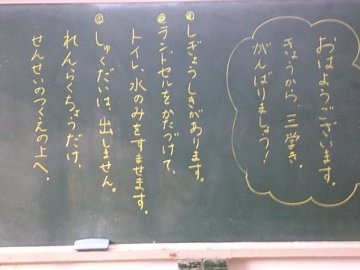 おはようございます。
きょうから、三学き。
がんばりましょう！
①しぎょうしきがあります。
②ランドセルをかたづけて、
トイレ、水のみをすませます。
③しゅくだいは、出しません。
れんらくちょうだけ、
せんせいのつくえの上へ。